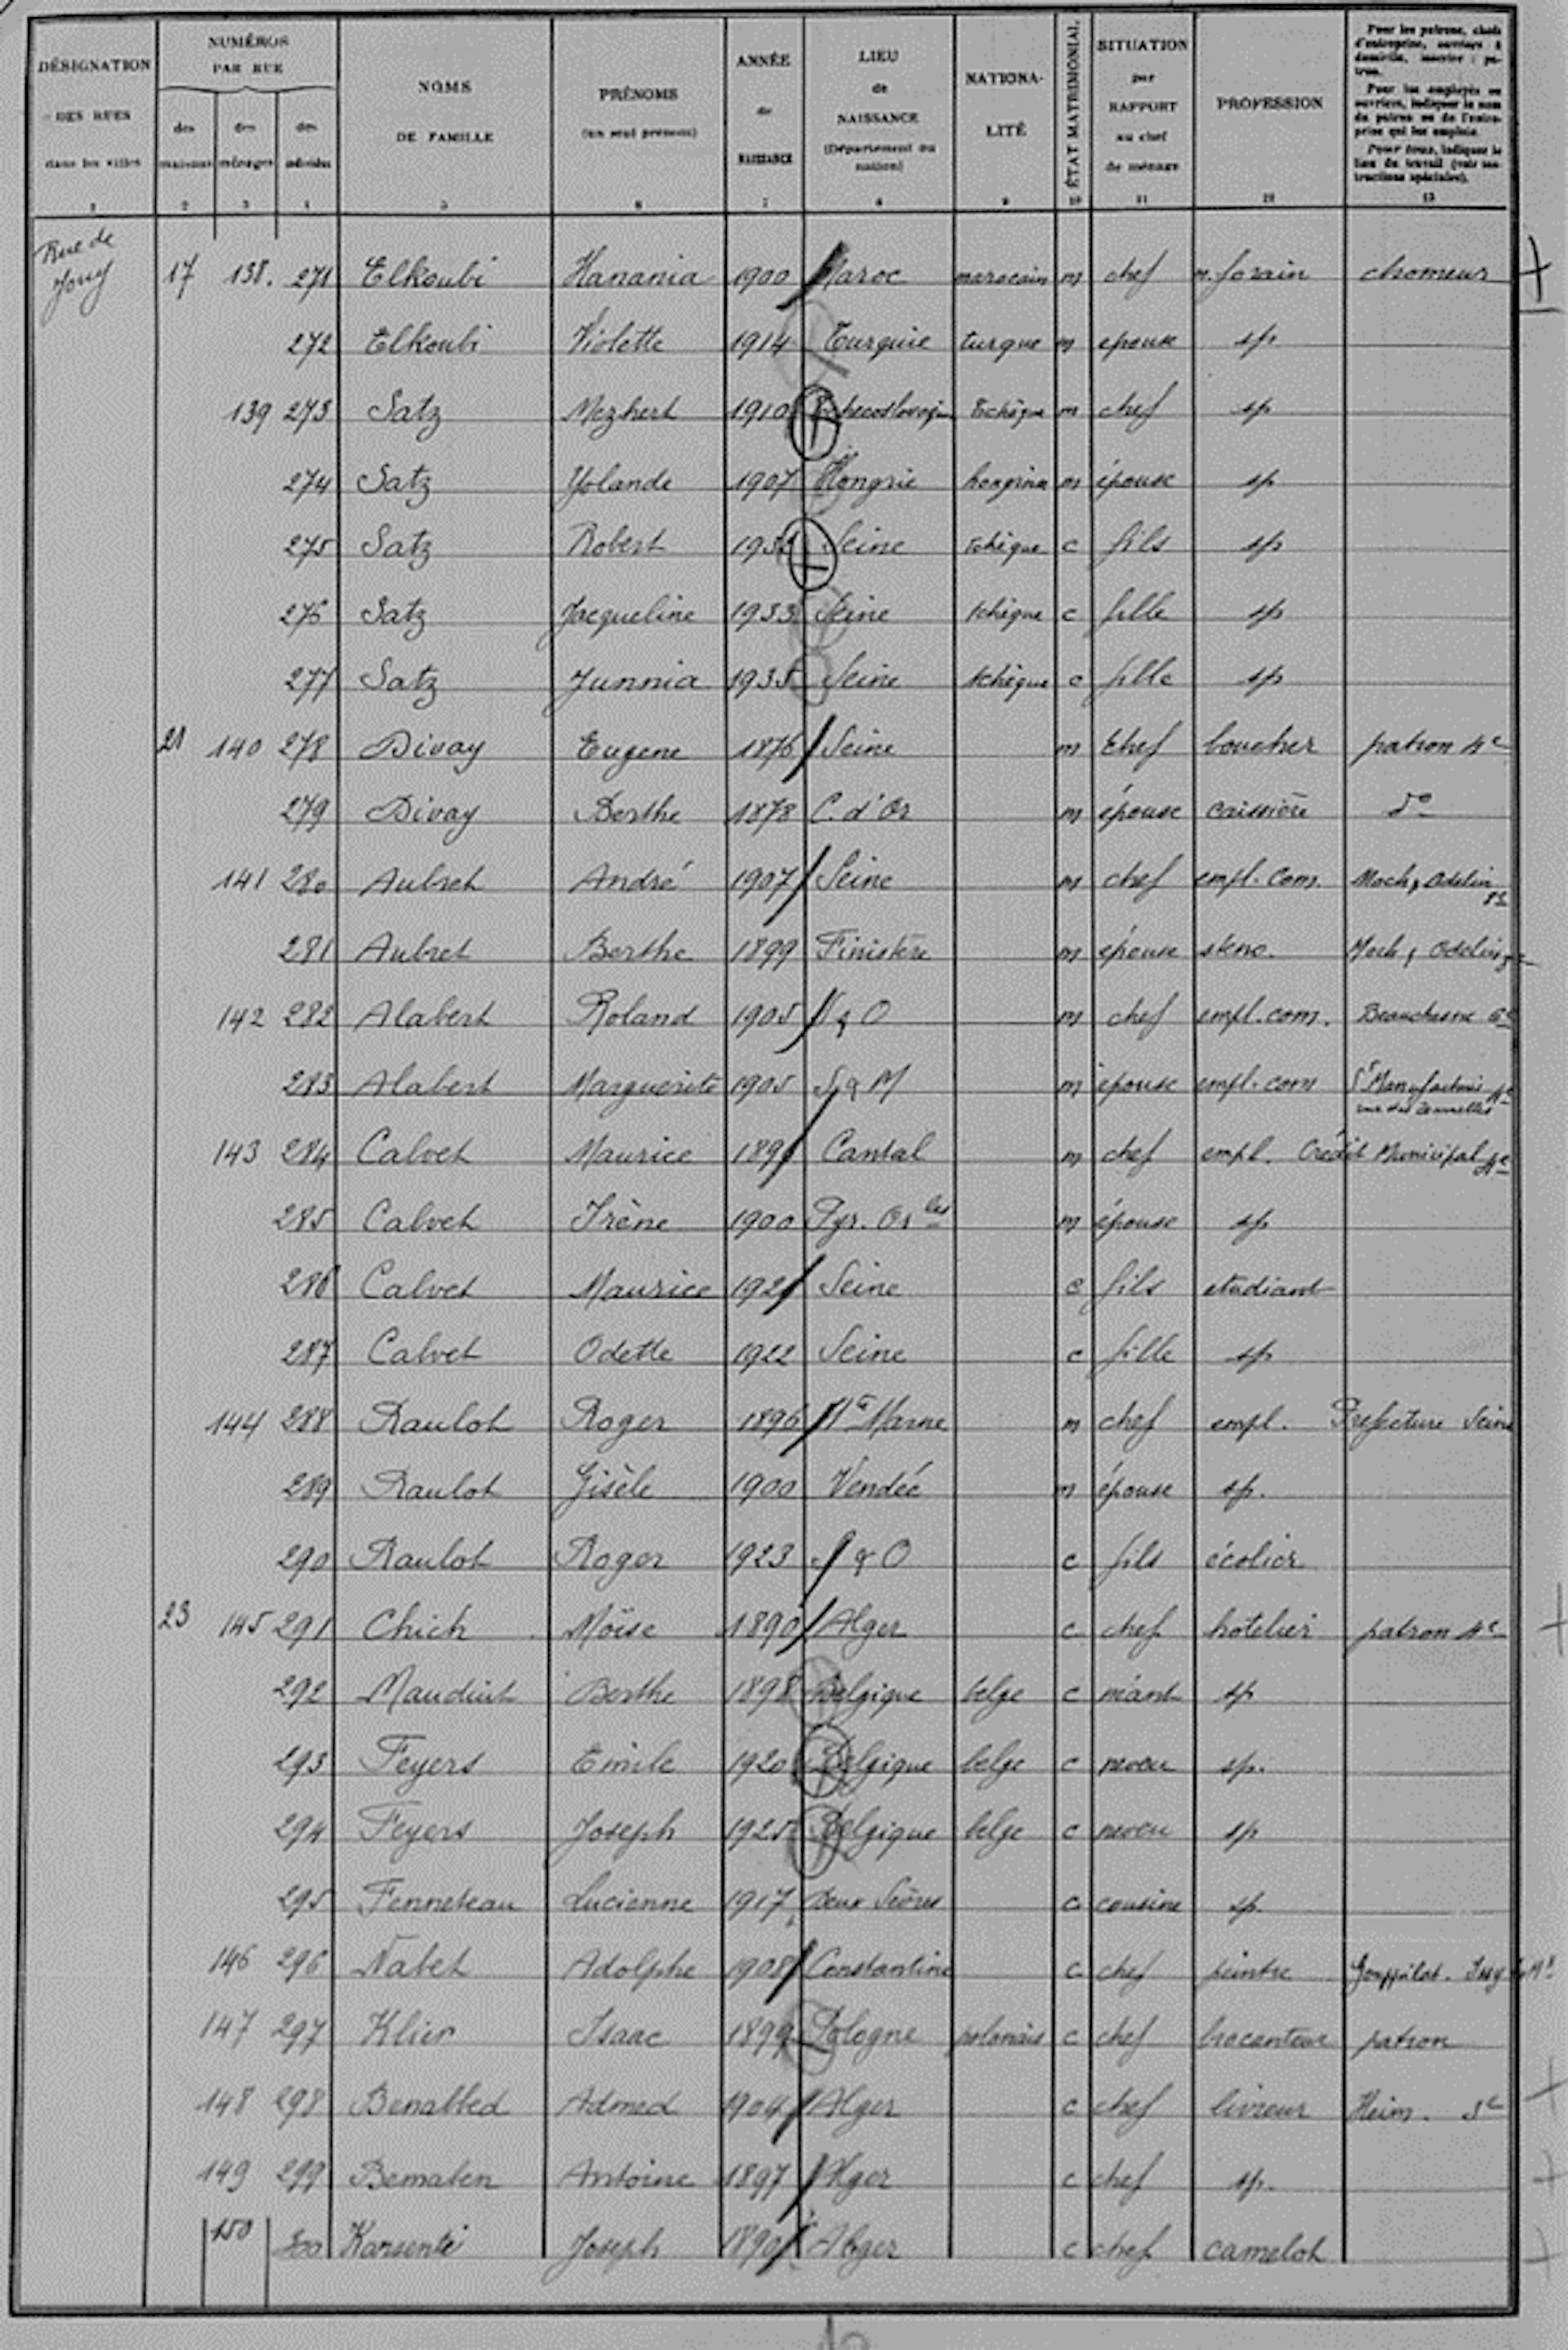 DÉSIGNATION DES RUES dans les villes 1
NUMÉROS PAR RUE des maisons 2 des ménages 3 des individus 4
NOMS DE FAMILLE 5
PRÉNOMS (un seul prénom) 6
ANNÉE de NAISSANCE 7
LIEU de NAISSANCE (Département ou nation) 8
NATIONALITÉ 9
ÉTAT MATRIMONIAL 10
SITUATION par RAPPORT au chef de ménage 11
PROFESSION 12
Pour les patrons, chefs d'entreprise, ouvriers à domicile, inscrire : patron.
Pour les employés ou ouvriers, indiquer le nom du patron ou de l'entreprise qui les emploie.
Pour tous, indiquer le lieu du travail (voir instructions spéciales). 13
Rue de Jouy 17 138. 271 Elkoubi Hanania 1900 Maroc marocain m chef m. forain chomeur
272 Elkoubi Violette 1914 Turquie turque m epouse sp
139 273 Satz 1910 Tchecoslovaquie Tchèque m chef sp
274 Satz Yolande 1907 Hongrie m épouse sp
275 Satz Robert Seine Tchèque c fils sp
276 Satz Jacqueline 1933 Seine tchèque c fille sp
277 Satz Junnia 1935 Seine tchèque c fille sp
21 140 278 Divay Eugene 1876 Seine m Chef boucher patron 4e
279 Divay Berthe 1878 C. d'Or m épouse caissière do
141 280 Aubret André 1907 Seine m chef empl. Com. Moch, Odelin
281 Aubret Berthe 1899 Finistère m épouse steno. Moch, Odelin
142 282 Alabert Roland 1905 S & O m chef empl. com. Beauchesne
283 Alabert Marguerite 1905 S & M m épouse empl. com
143 284 Calvet Maurice Cantal m chef empl. Crédit Municipal 4e
285 Calvet Irène 1900 Pyr. Or les m épouse sp
286 Calvet Maurice Seine c fils etudiant
287 Calvet Odette 1922 Seine c fille sp
144 288 Raulot Roger 1896 Hte Marne m chef empl. Prefecture Seine
289 Raulot Gisèle 1900 Vendée m épouse sp.
290 Raulot Roger 1923 S & O c fils écolier
23 145 291 Chich Moïse 1890 Alger c chef hotelier patron 4e
292 Mauduit Berthe 1898 Belgique belge c néant sp
293 Feyers Emile 1920 Belgique belge c neveu sp.
294 Feyers Joseph 1925 Belgique belge c neveu sp
295 Fenneteau Lucienne 1917 Deux Sèvres c cousine sp.
146 296 Nabet Adolphe 1908 Constantine c chef peintre
147 297 Klier Isaac 1899 Pologne polonais c chef brocanteur patron
148 298 Benabbed Admed 1904 Alger c chef livreur Heim.
149 299 Bematen Antoine 1897 Alger c chef sp.
150 300 Karsenti Joseph Alger c chef camelot